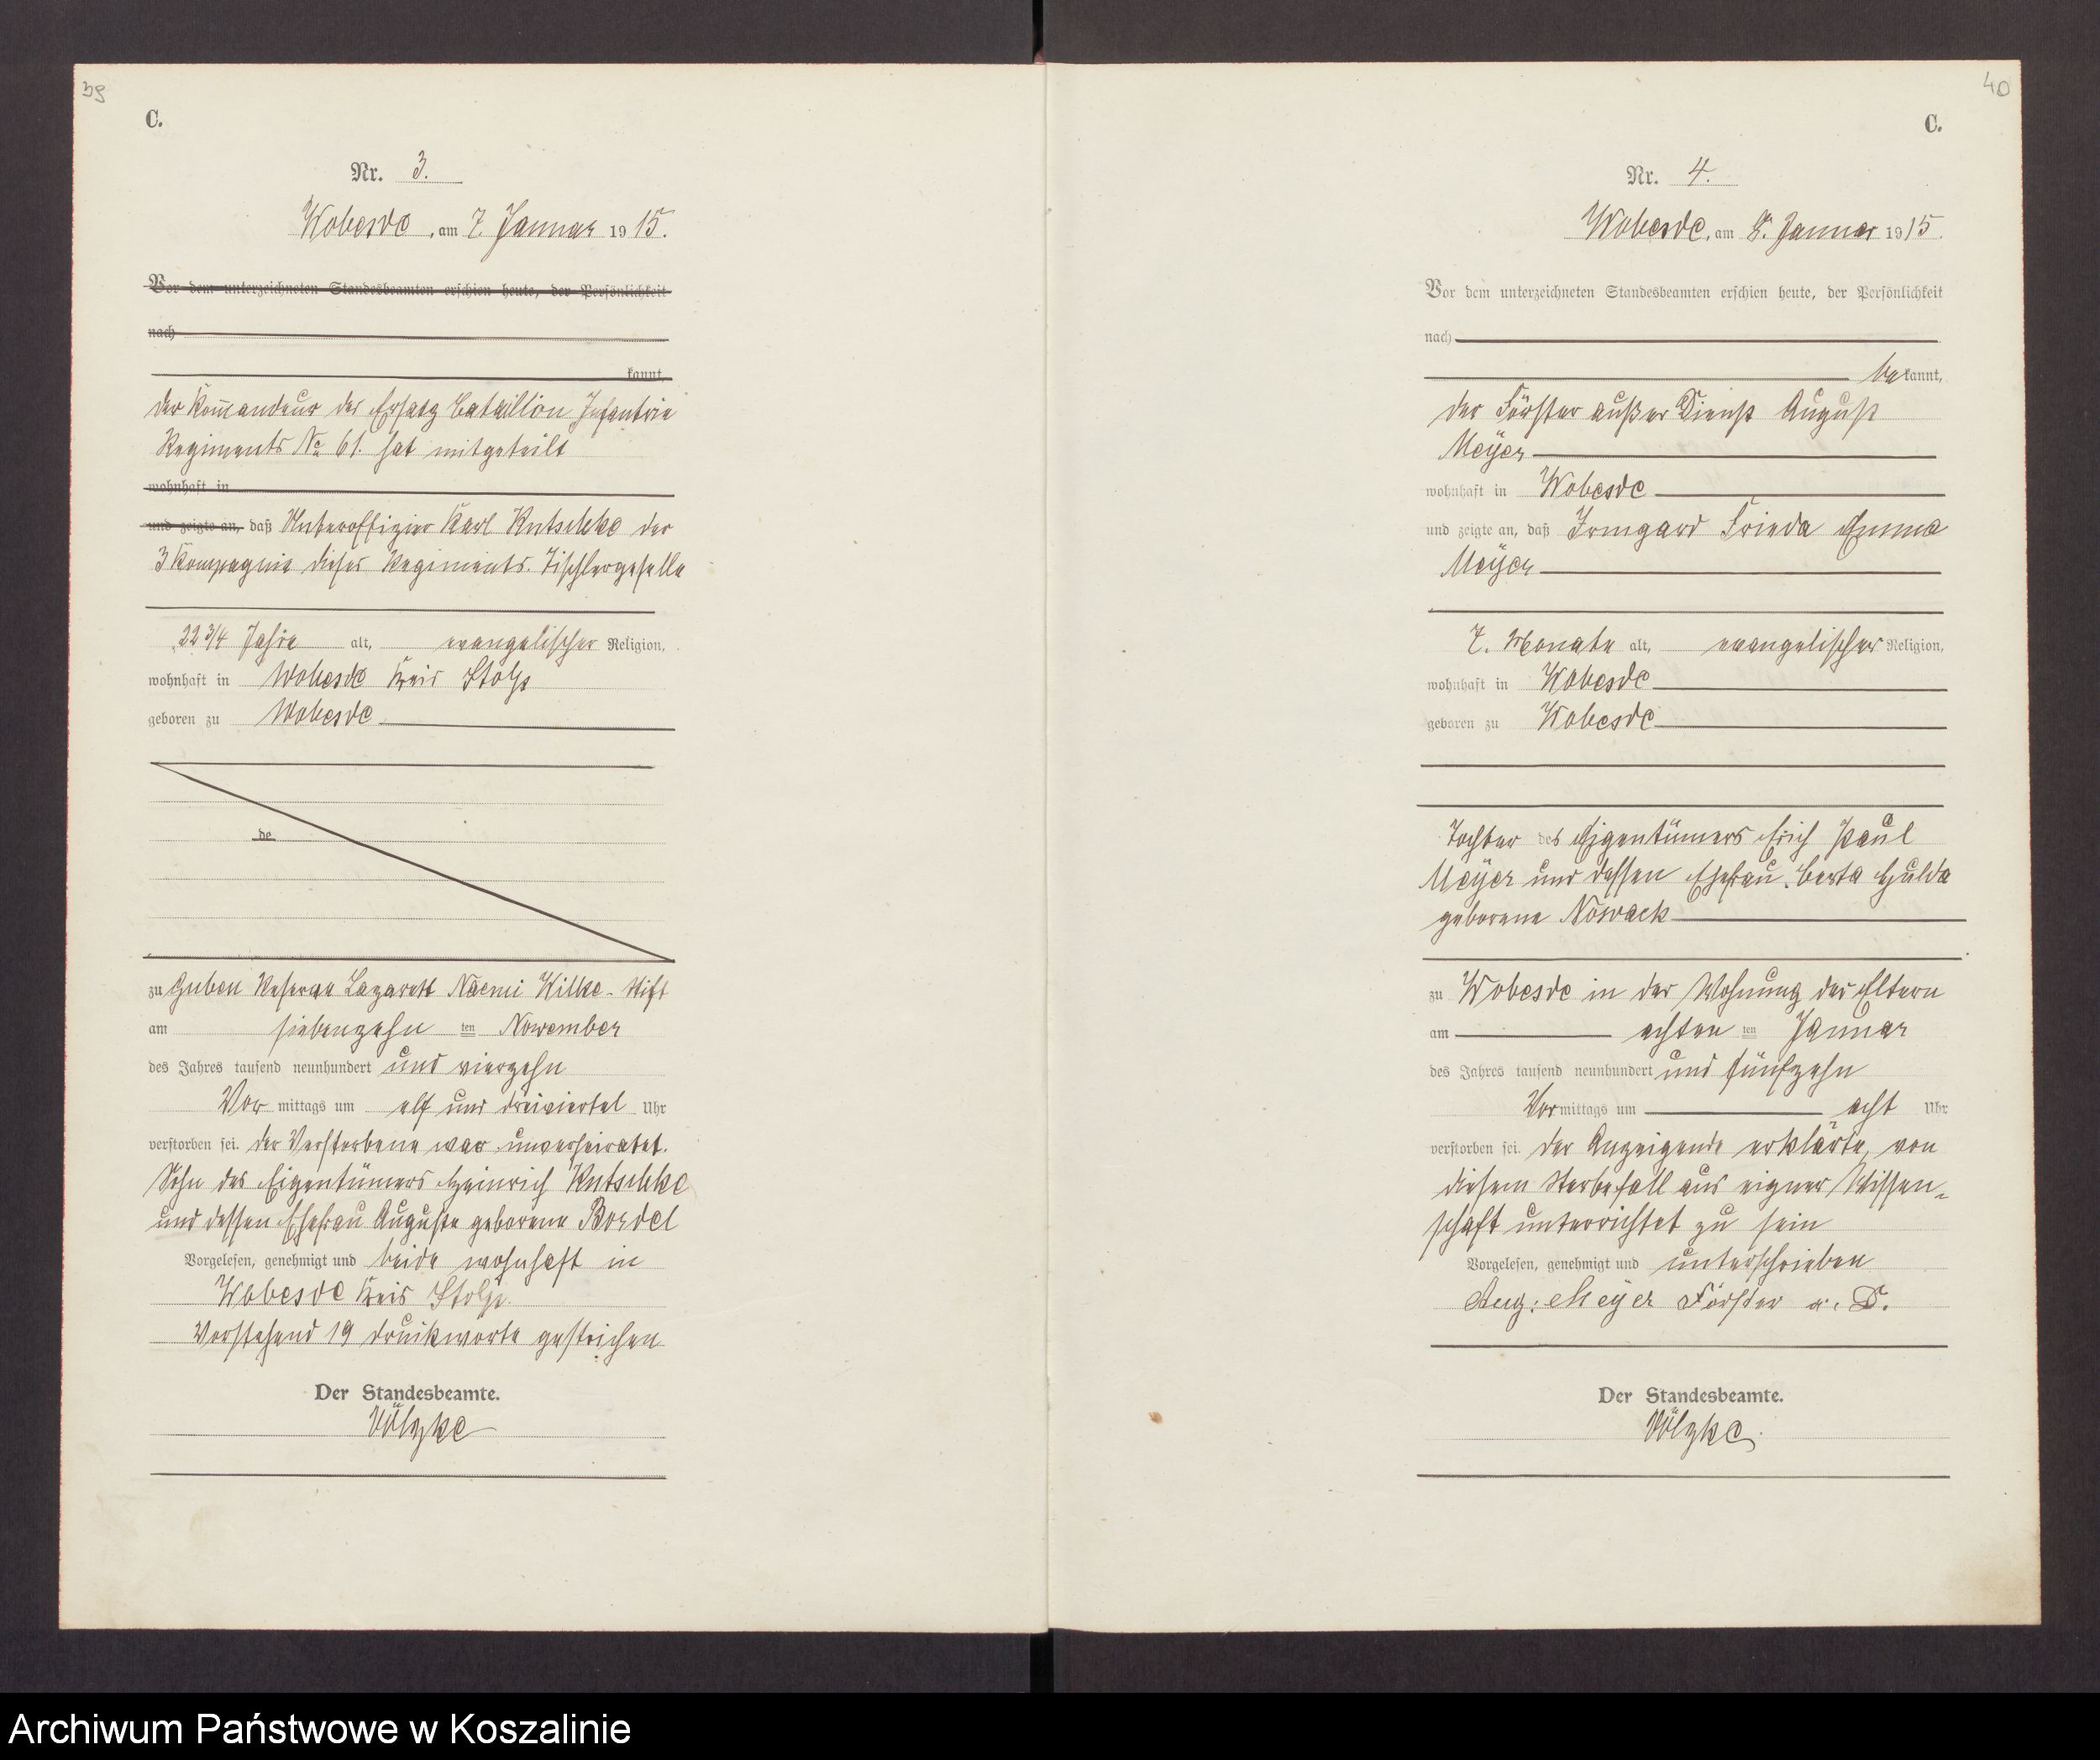 39
C.
Nr. 3.
Wobesde, am 7 Januar 1915.
Vor dem unterzeichneten Standesbeamten erschien heute, der Persönlichkeit
nach
kannt,
der Kom̄andeur des Ersatz Bataillon Infantrie
Regiments No 61. hat mitgeteilt
wohnhaft in
und zeigte an, daß Unteroffizier Karl Kutschke der
3 Kompagnie dieses Regiments. Tischlergeselle
22 3/4 Jahre alt, evangelischer Religion,
wohnhaft in Wobesde Kreis Stolp
geboren zu Wobesde
de
zu Guben Reserve Lazarett Naemi Wilke-Stift
am siebenzehn ten November
des Jahres tausend neunhundert und vierzehn
Vor mittags um elf und dreiviertel Uhr
verstorben sei. Der Verstorbene war unverheiratet.
Sohn des Eigentümers Heinrich Kutschke
und dessen Ehefrau Auguste geborene Bordel
Vorgelesen, genehmigt und beide wohnhaft in
Wobesde Kreis Stolp.
Vorstehend 19 Druckworte gestrichen
Der Standesbeamte.
Völzke
40
C.
Nr. 4.
Wobesde, am 8. Januar 1915.
Vor dem unterzeichneten Standesbeamten erschien heute, der Persönlichkeit
nach
bekannt,
der Förster außer Dienst August
Meÿer
wohnhaft in Wobesde
und zeigte an, daß Irmgard Frieda Emma
Meÿer
7. Monate alt, evangelischer Religion,
wohnhaft in Wobesde
geboren zu Wobesde
Tochter des Eigentümers Erich Paul
Meÿer und dessen Ehefrau Berta Hulda
geborene Nowack
zu Wobesde in der Wohnung der Eltern
am achten ten Januar
des Jahres tausend neunhundert und fünfzehn
Vor mittags um acht Uhr
verstorben sei. Der Anzeigende erklärte, von
diesem Sterbefall aus eigner Wissen-
schaft unterrichtet zu sein
Vorgelesen, genehmigt und unterschrieben
Aug: Meÿer Förster a. D.
Der Standesbeamte.
Völzke.
Archiwum Państwowe w Koszalinie